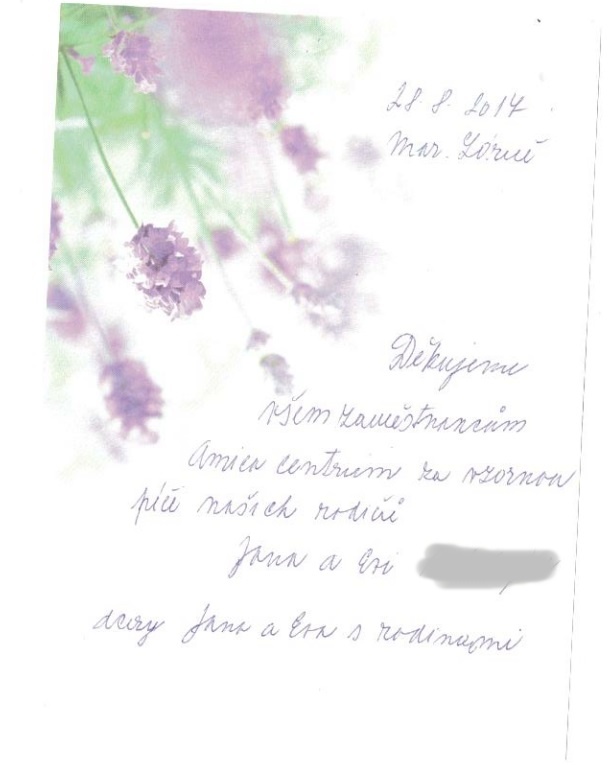 28. 8. 2017
Mar. Lázně
Děkujeme
všem zaměstnancům
Amica centrum za vzornou
péči našich rodičů
Jana a Evi
dcery Jana a Eva s rodinami